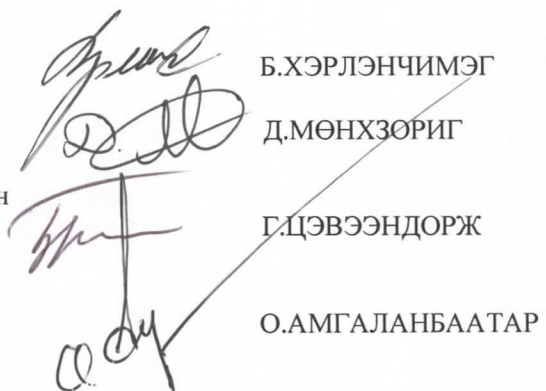 Б.ХЭРЛЭНЧИМЭГ
Д.МӨНХЗОРИГ
н
Г.ЦЭВЭЭНДОРЖ
О.АМГАЛАНБААТАР